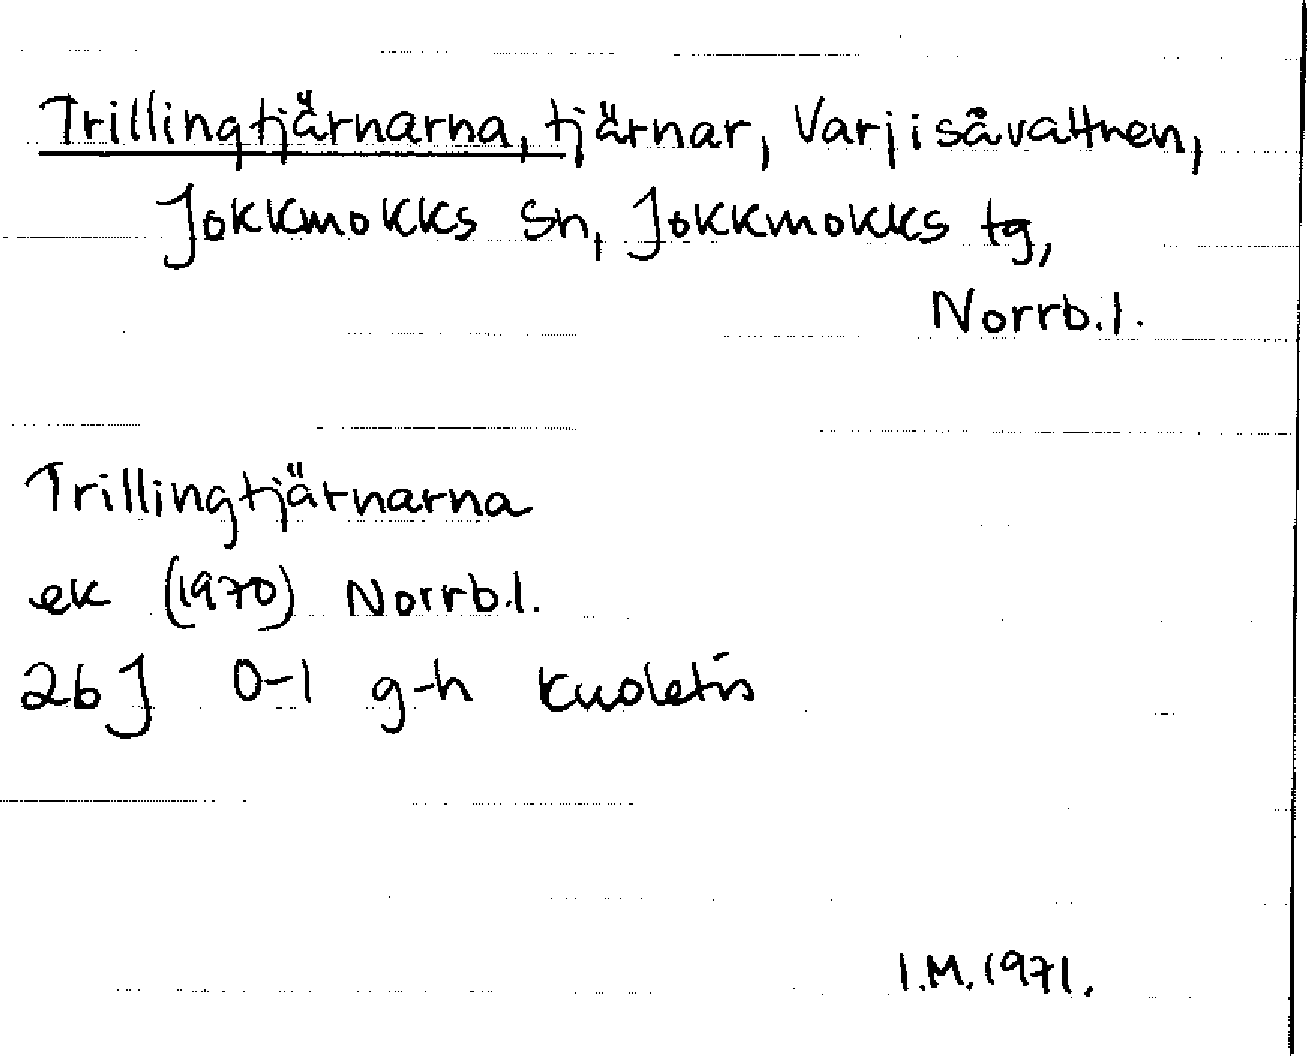 Trillingtjärnarna, tjärnar, Varjisåvattnen,
Jokkmokks sn, Jokkmokks tg,
Norrb.l.
Trillingtjärnarna
ek (1970) Norrb.l.
26J 0-1 g-h Kuoletis
I.M. 1971.